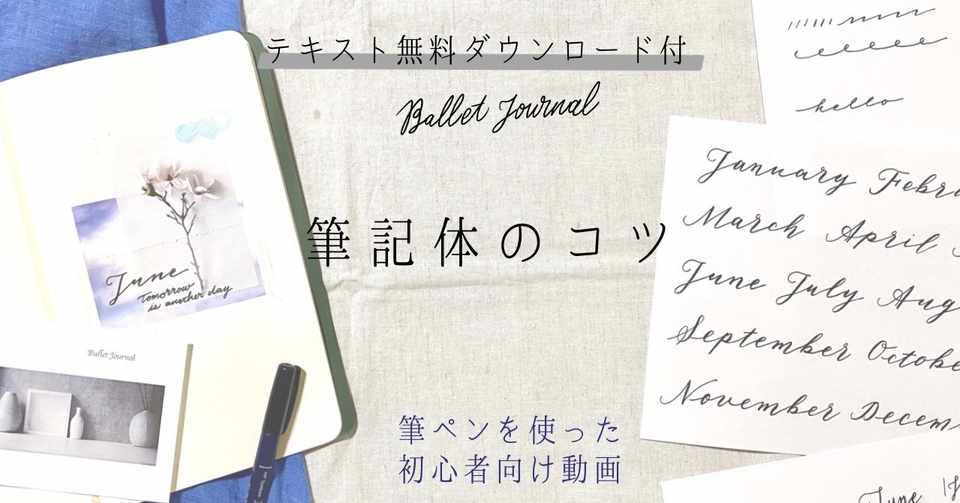 テキスト無料ダウンロード付
Ballet Journal
筆記体のコツ
筆ペンを使った
初心者向け動画
June
Tomorrow
is another day
Bullet Journal
hello
January Febru
March April
June July Aug
September Octobe
November Decem
June